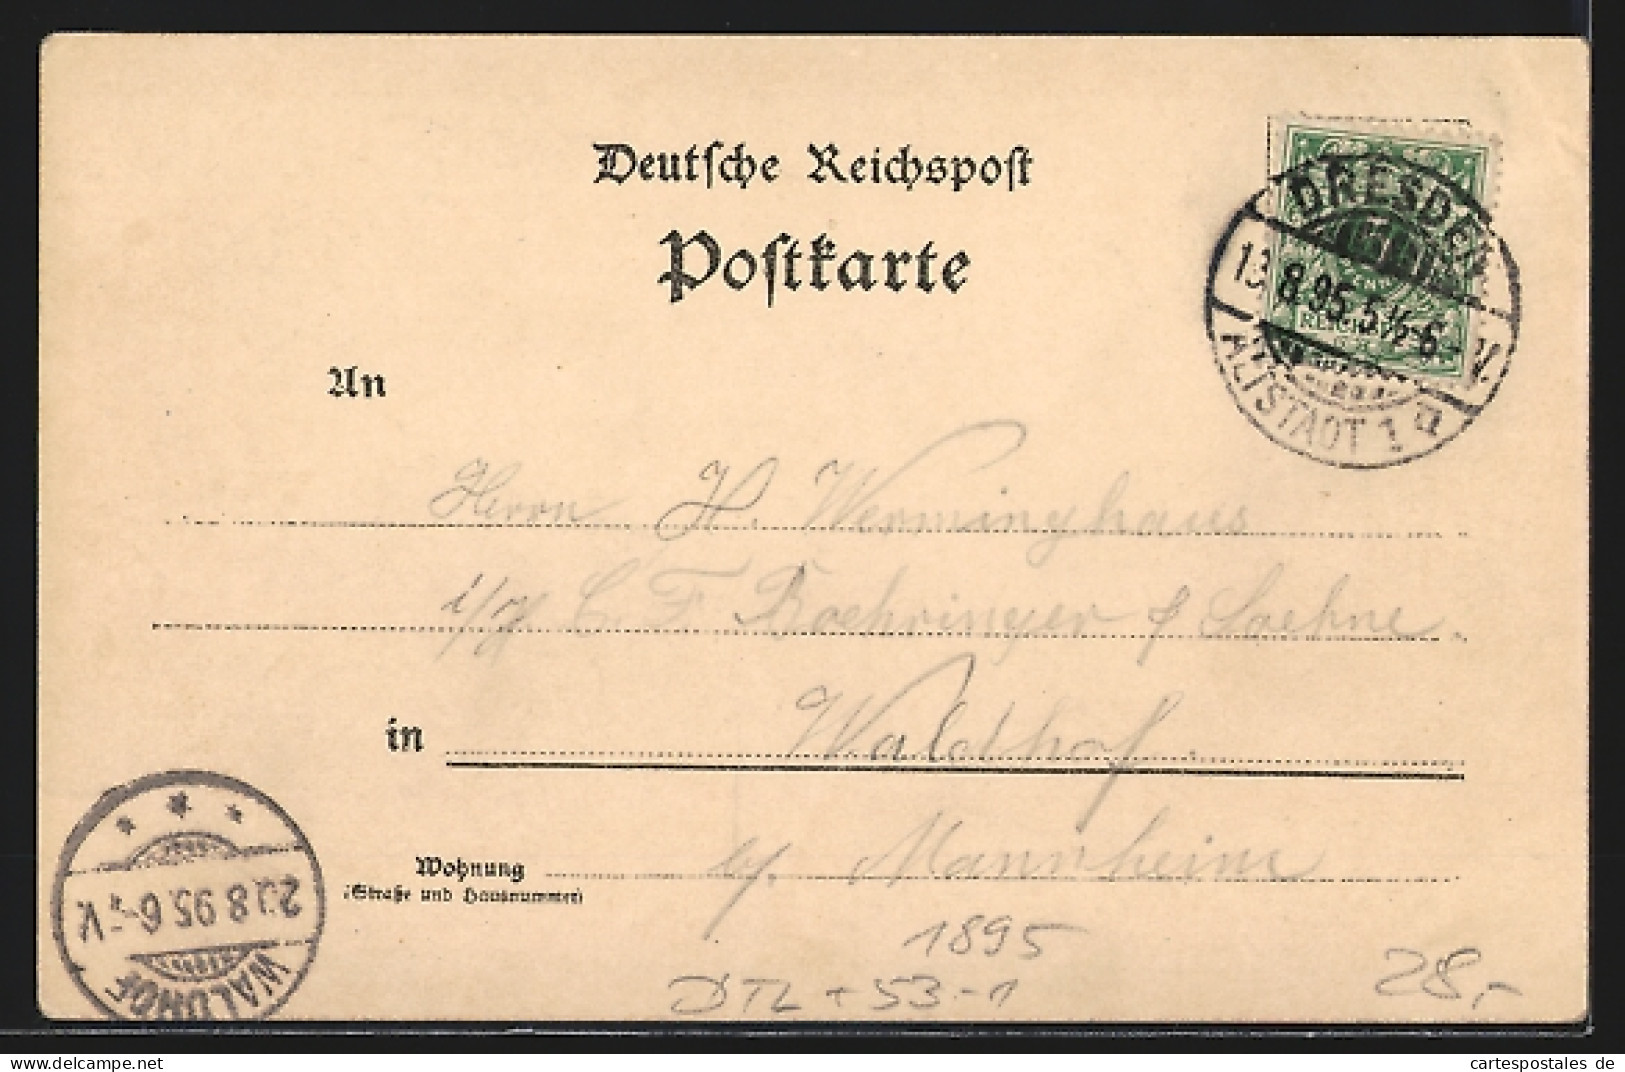 Deutsche Reichspost
Postkarte
DRESDEN
13.8.95.5½-6-V.
ALTSTADT 1 a
REICHSPOST
An
Herrn H. Werminghaus
i/H C. F. Boehringer & Soehne.
in Waldhof.
b/. Mannheim
Wohnung
(Straße und Hausnummer)
WALDHOF
20.8.95.6-
1895
DTL + 53.-1
28,-
www.cartespostales.eu
cartespostales de